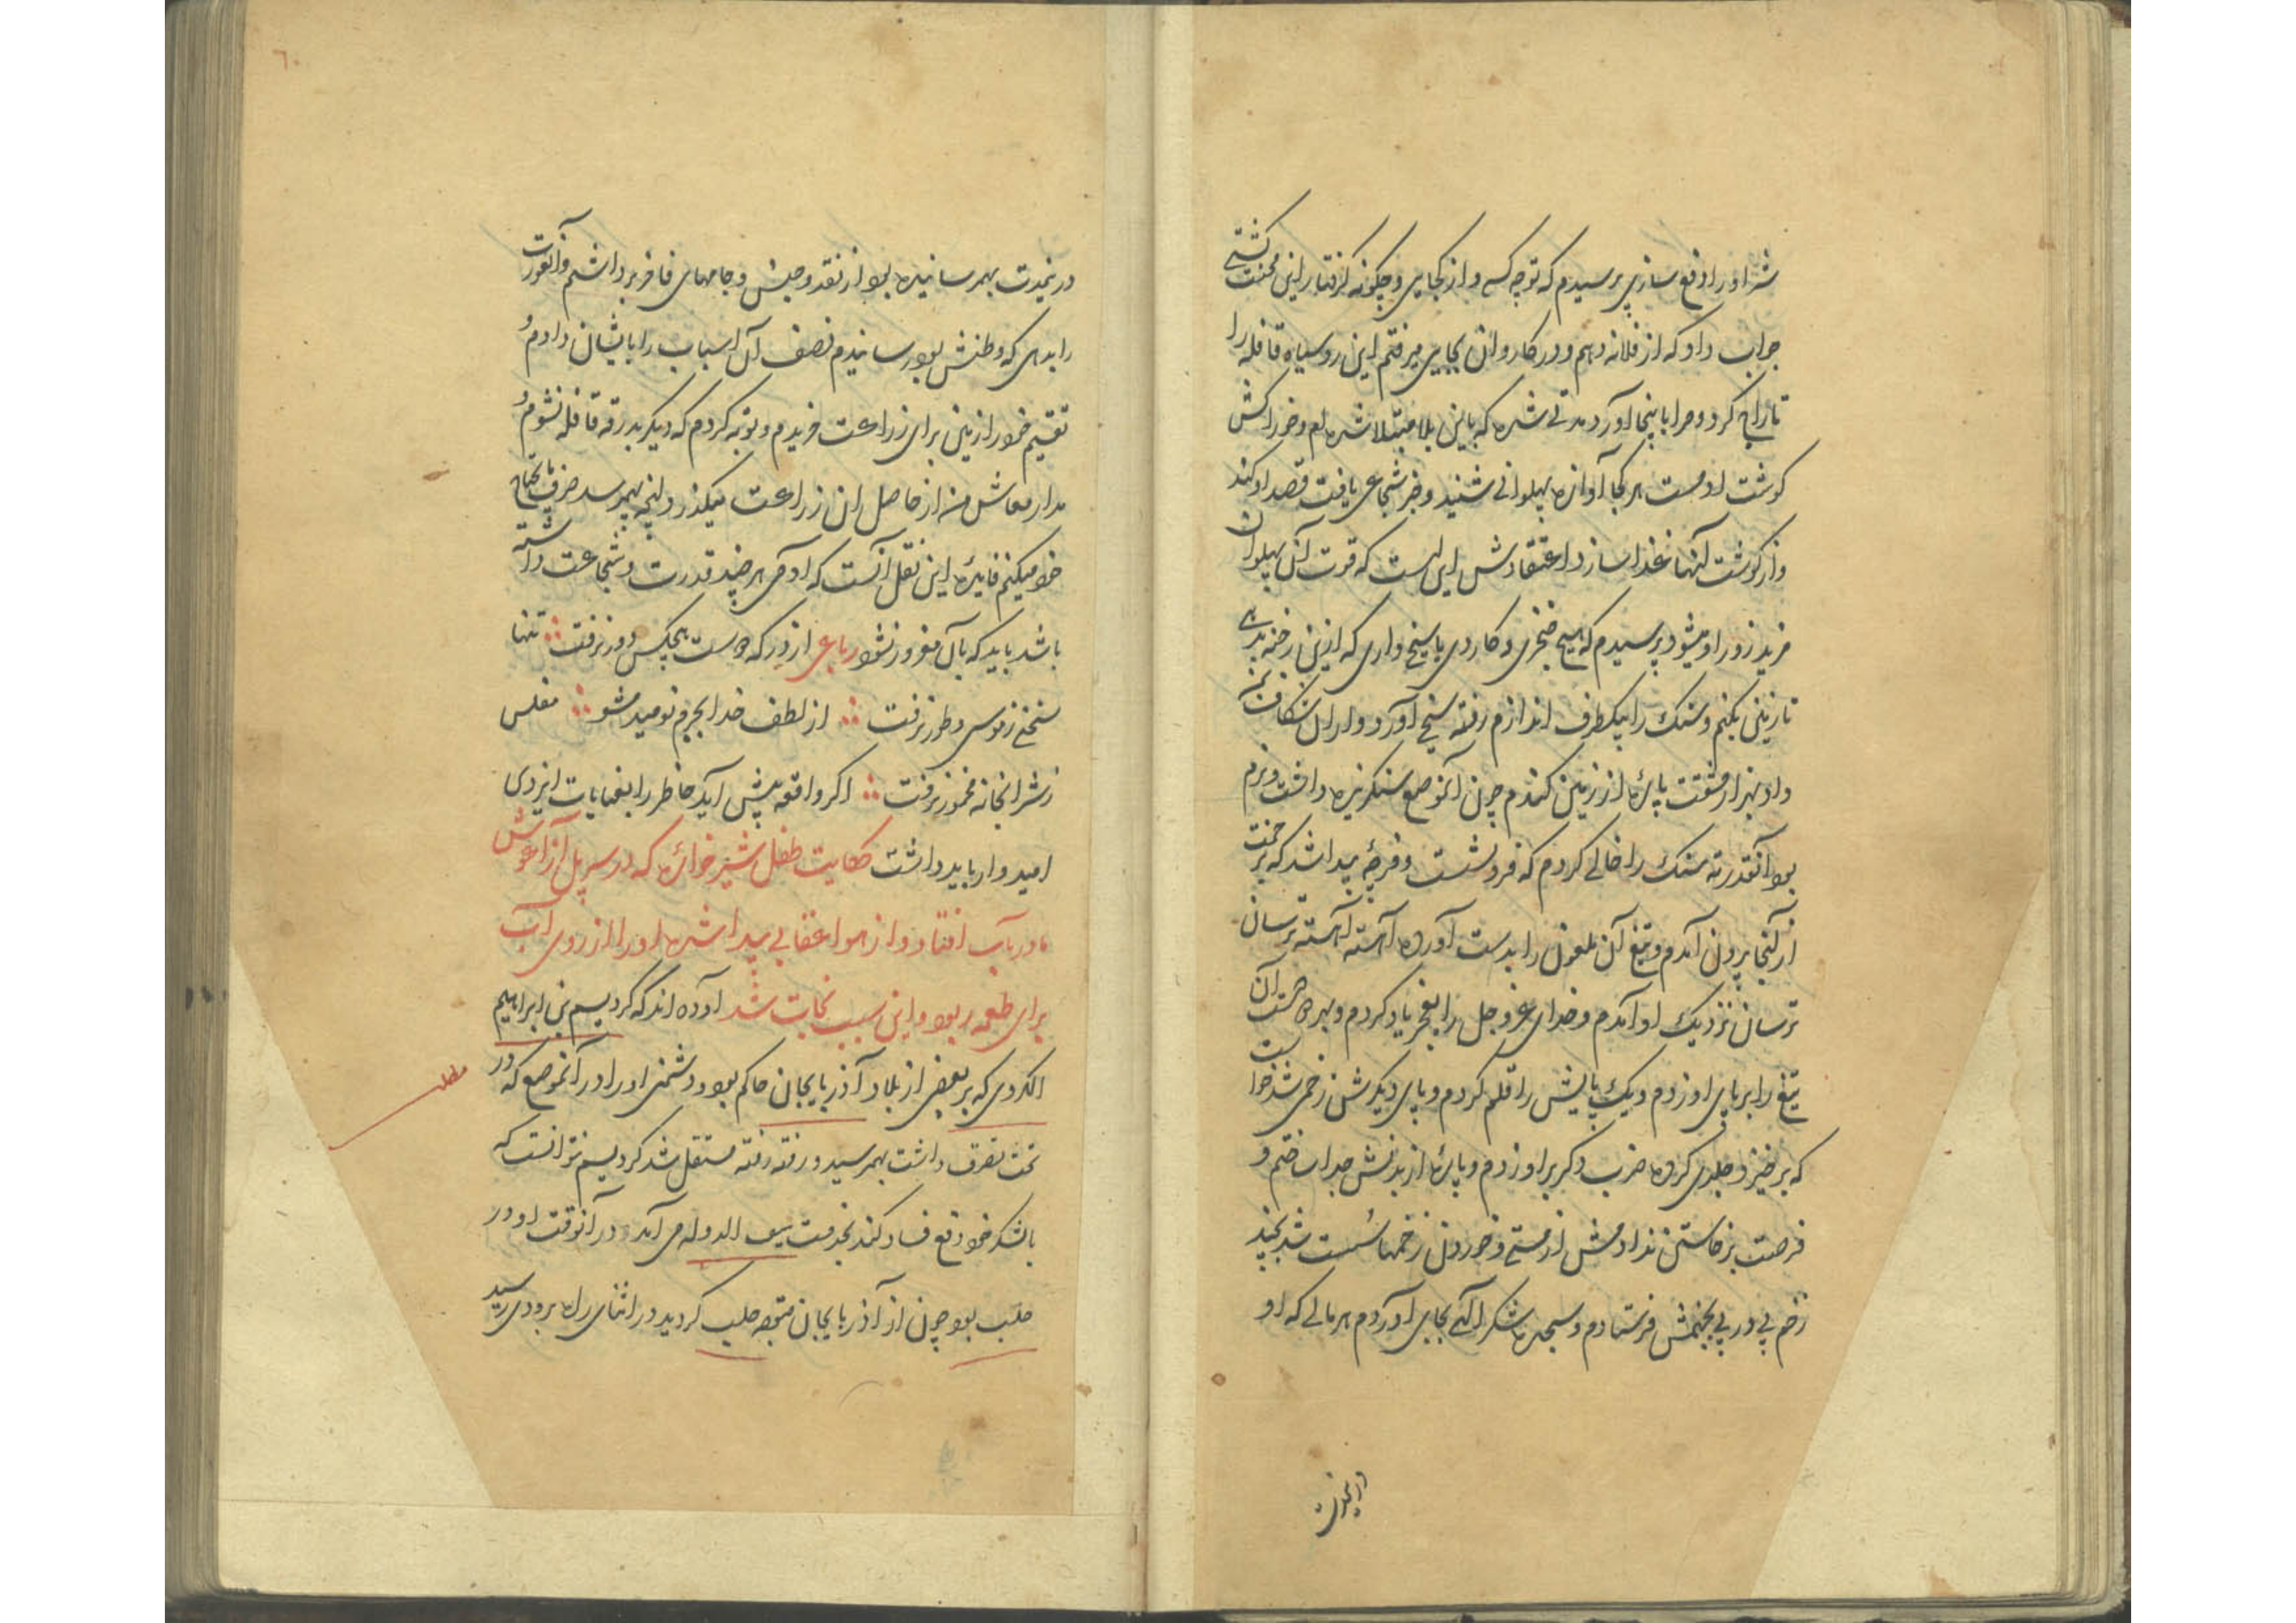 شر او را دفع سازی پرسیدم که تو چه کسی و از کجایی و چگونه گرفتار این محنت گشتی
جواب داد که از فلانه دهم و در کاروان بجایی میرفتم این روسیاه قافله را
تاراج کرد و مرا باینجا آورد مدتی شده که باین بلا مبتلا شده ام و خوراکش
گوشت آدمست هر کجا آوازه پهلوانی شنید و خبر شجاعی یافت قصد او کند
و از گوشت آنها غذا سازد اعتقادش این است که قوت آن پهلوان
مزید زور او میشود پرسیدم که هیچ خنجری و کاردی یا سیخی داری که ازین رخنه بدهی
تا زمین بکنم و سنک را بیکطرف اندازم رفته سیخی آورد و از آن شکاف بمن
داد بهزار مشقت پاره از زمین کندم چون آنموضع سنکریزه داشت و نرم
بود آنقدر ته سنک را خالی کردم که فرو نشست و فرجه پیدا شد که بزحمت
از آنجا بیرون آمدم و تیغ آن ملعون را بدست آورده آهسته آهسته ترسان
ترسان نزدیک او آمدم و خدای عز و جل را بعجز یاد کردم و بهر دو دست آن
تیغ را بر پای او زدم و یک پایش را قلم کردم و پای دیکرش زخمی شد خواست
که برخیزد جلدی کرده ضرب دکر بر او زدم و پاره از بدنش جدا ساختم و
فرصت برخاستن ندادمش از مستی و خوردن زخمها سست شد بچند
زخم پی در پی بجهنمش فرستادم و سجده شکر الهی بجای آوردم هر مالی که او
در ینمدت
در ینمدت بهم رسانیده بود از نقد و جنس و جامهای فاخر برداشتم و آنعورت
را بدهی که وطنش بود رسانیدم نصف آن اسباب را بایشان دادم و
تقسیم خود را زمین برای زراعت خریدم و توبه کردم که دیکر بدرقه قافله نشوم و
مدار معاش من از حاصل آن زراعت میکذرد آنچه بهم رسد صرف مایحتاج
خود میکنم فایده این نقل آنست که آدمی هر چند قدرت و شجاعت داشته
باشد باید که بآن مغرور نشود رباعی از درکه دوست هیچکس دور نرفت تنها
سخنی ز موسی و طور نرفت از لطف خدا بجرم نومید مشو مفلس
ز شرابخانه مخمور نرفت اکر واقعه پیش آید خاطر را بعنایات ایزدی
امیدوار باید داشت حکایت طفل شیر خواره که در سر پل از آغوش
مادر بآب افتاد و از هوا عقابی پیدا شده او را از روی آب
برای طعمه ربود و این سبب نجات شد آورده اند که کردیسم بن ابراهیم
الکردی که بر بعضی از بلاد آذربایجان حاکم بود و دشمنی او را در آنموضع که در
تحت تصرف داشت بهمرسید و رفته رفته مستقل شد کردیسم نتوانست که
بالشکر خود دفع فساد کند بخدمت سیف الدوله می آمد در آنوقت او در
حلب بود چون از آذربایجان متوجه حلب کردید در اثنای راه برودی رسید
مطلب
٦٠